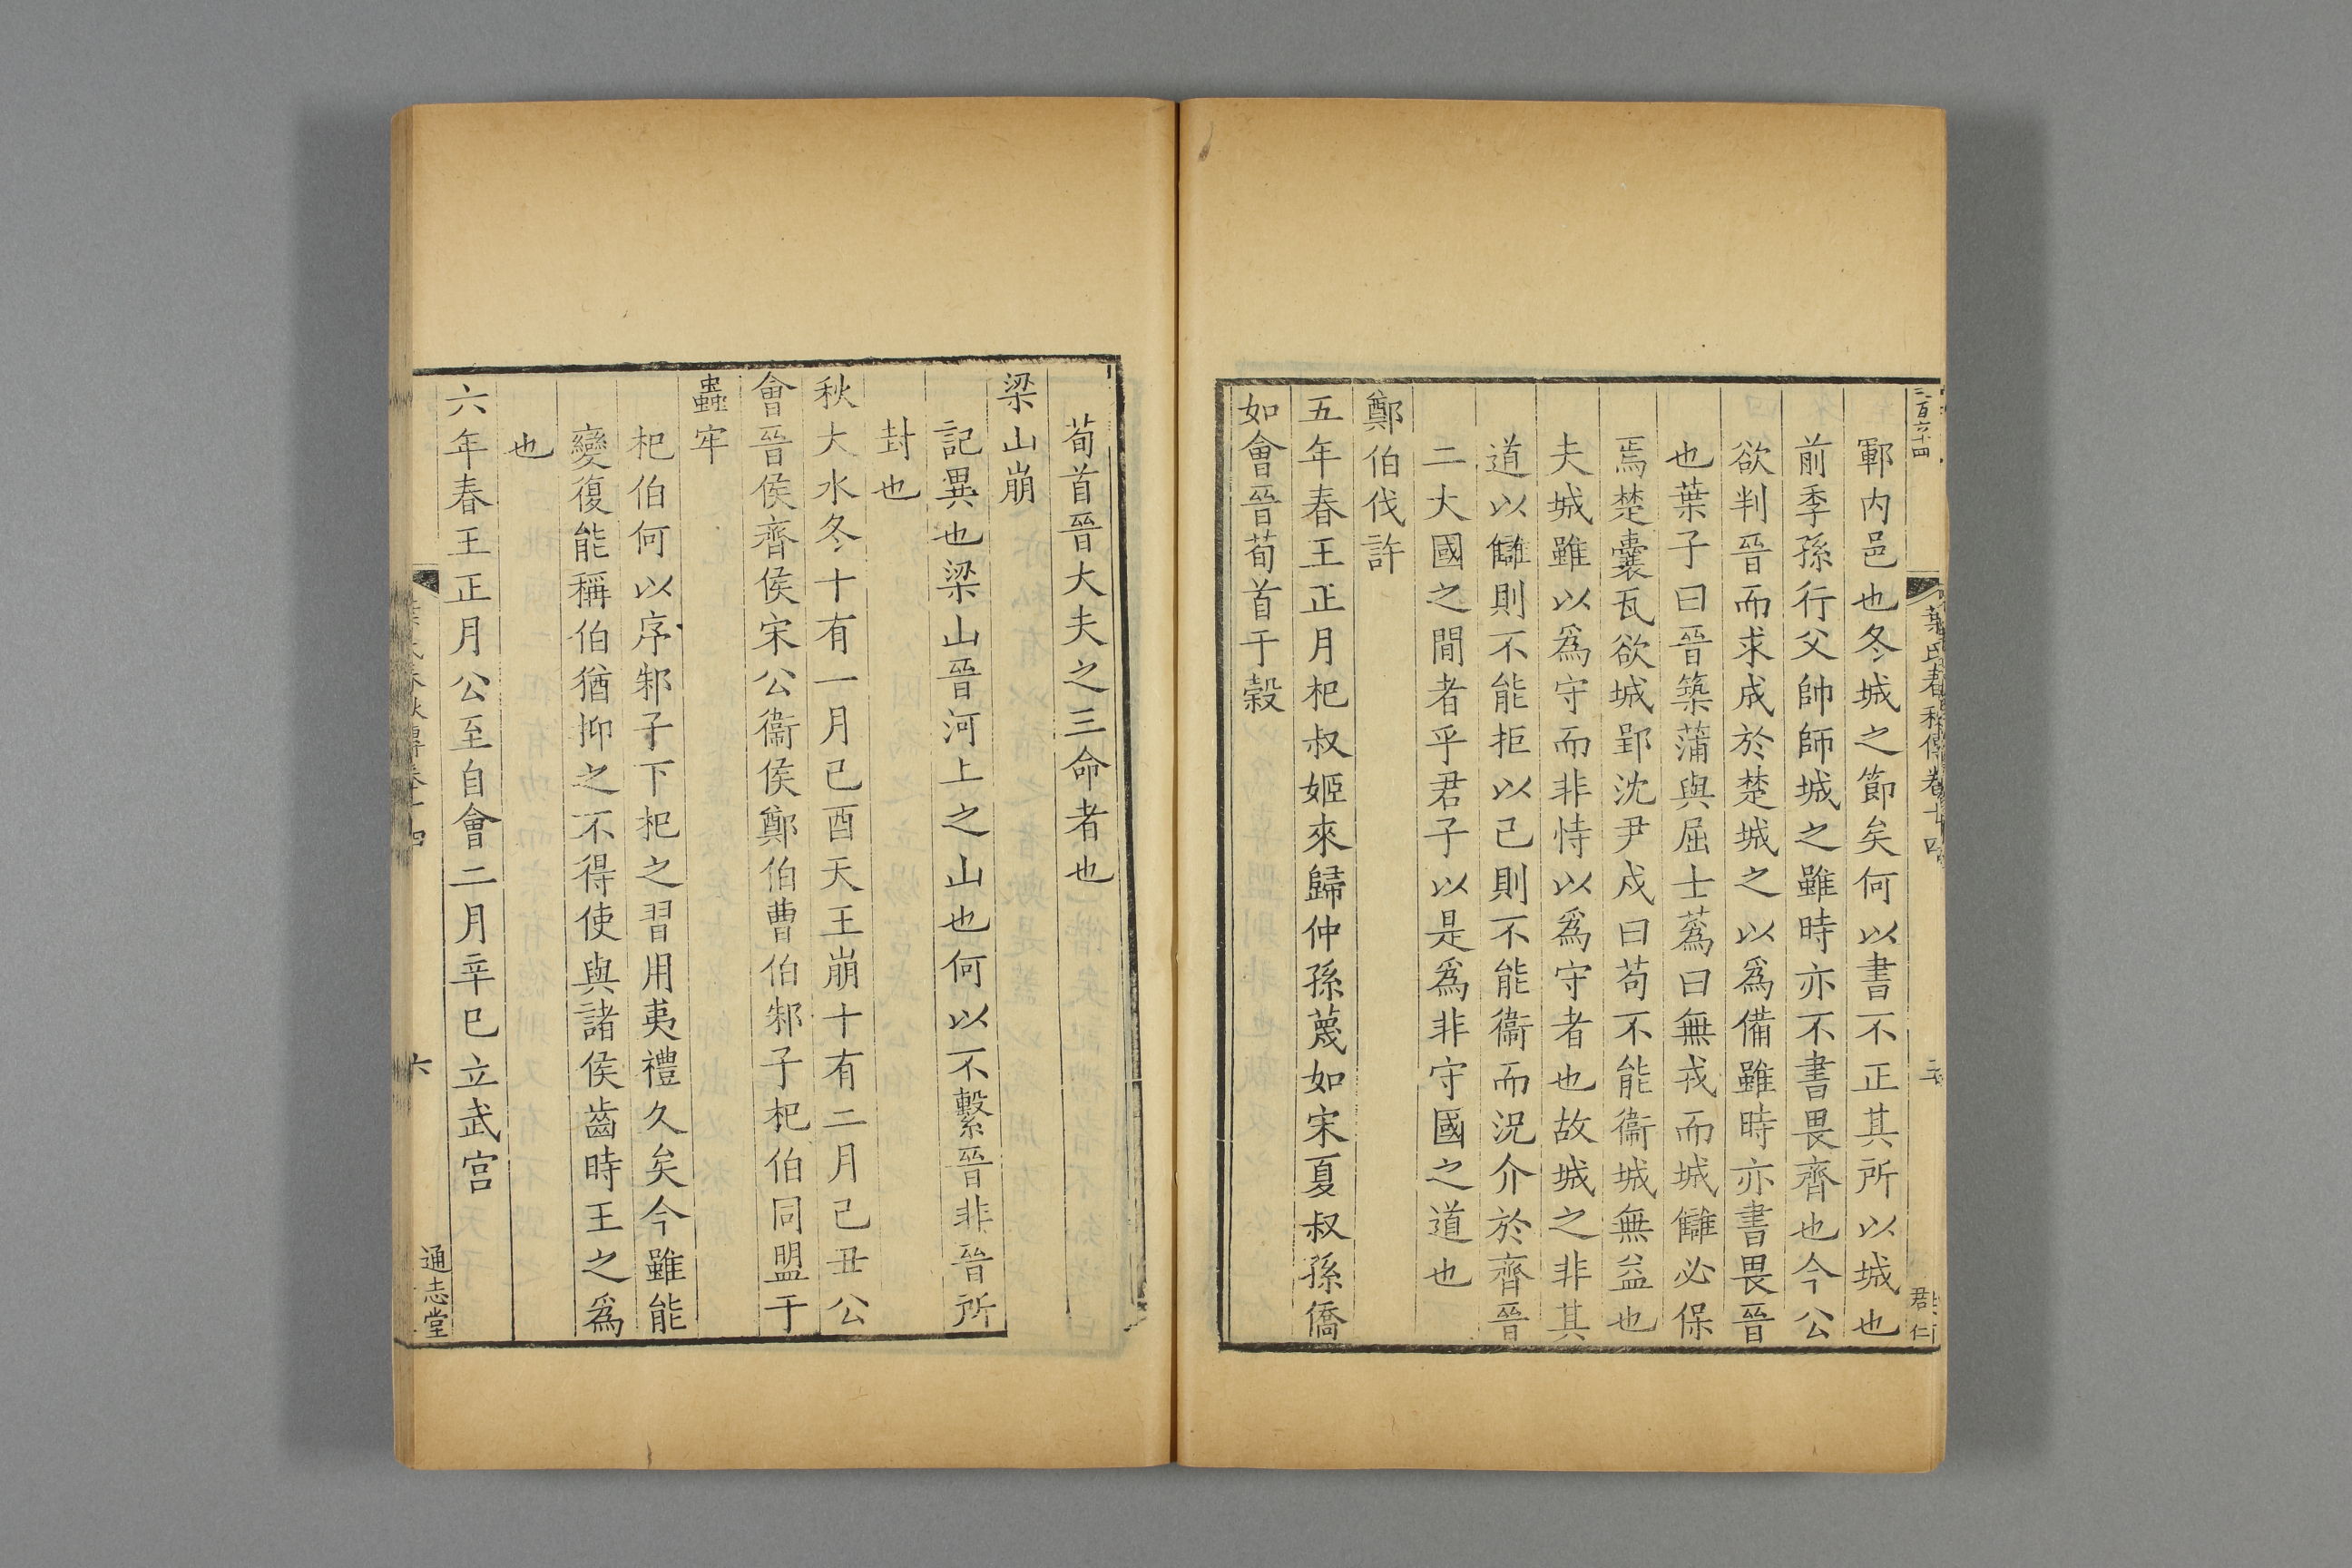 三百六十四
葉氏春秋傳卷十四
鄆内邑也冬城之節矣何以書不正其所以城也
前季孫行父帥師城之雖時亦不書畏齊也今公
欲判晉而求成於楚城之以爲備雖時亦書畏晉
也葉子曰晉築蒲與屈士蔿曰無戎而城讎必保
焉楚囊瓦欲城郢沈尹戍曰苟不能衞城無益也
夫城雖以爲守而非恃以爲守者也故城之非其
道以讎則不能拒以己則不能衞而況介於齊晉
二大國之閒者乎君子以是爲非守國之道也
鄭伯伐許
五年春王正月杞叔姬來歸仲孫蔑如宋夏叔孫僑
如會晉荀首于穀
荀首晉大夫之三命者也
梁山崩
記異也梁山晉河上之山也何以不繫晉非晉所
封也
秋大水冬十有一月己酉天王崩十有二月己丑公
會晉侯齊侯宋公衞侯鄭伯曹伯邾子杞伯同盟于
蟲牢
杞伯何以序邾子下杞之習用夷禮久矣今雖能
變復能稱伯猶抑之不得使與諸侯齒時王之爲
也
六年春王正月公至自會二月辛巳立武宫
六
通志堂